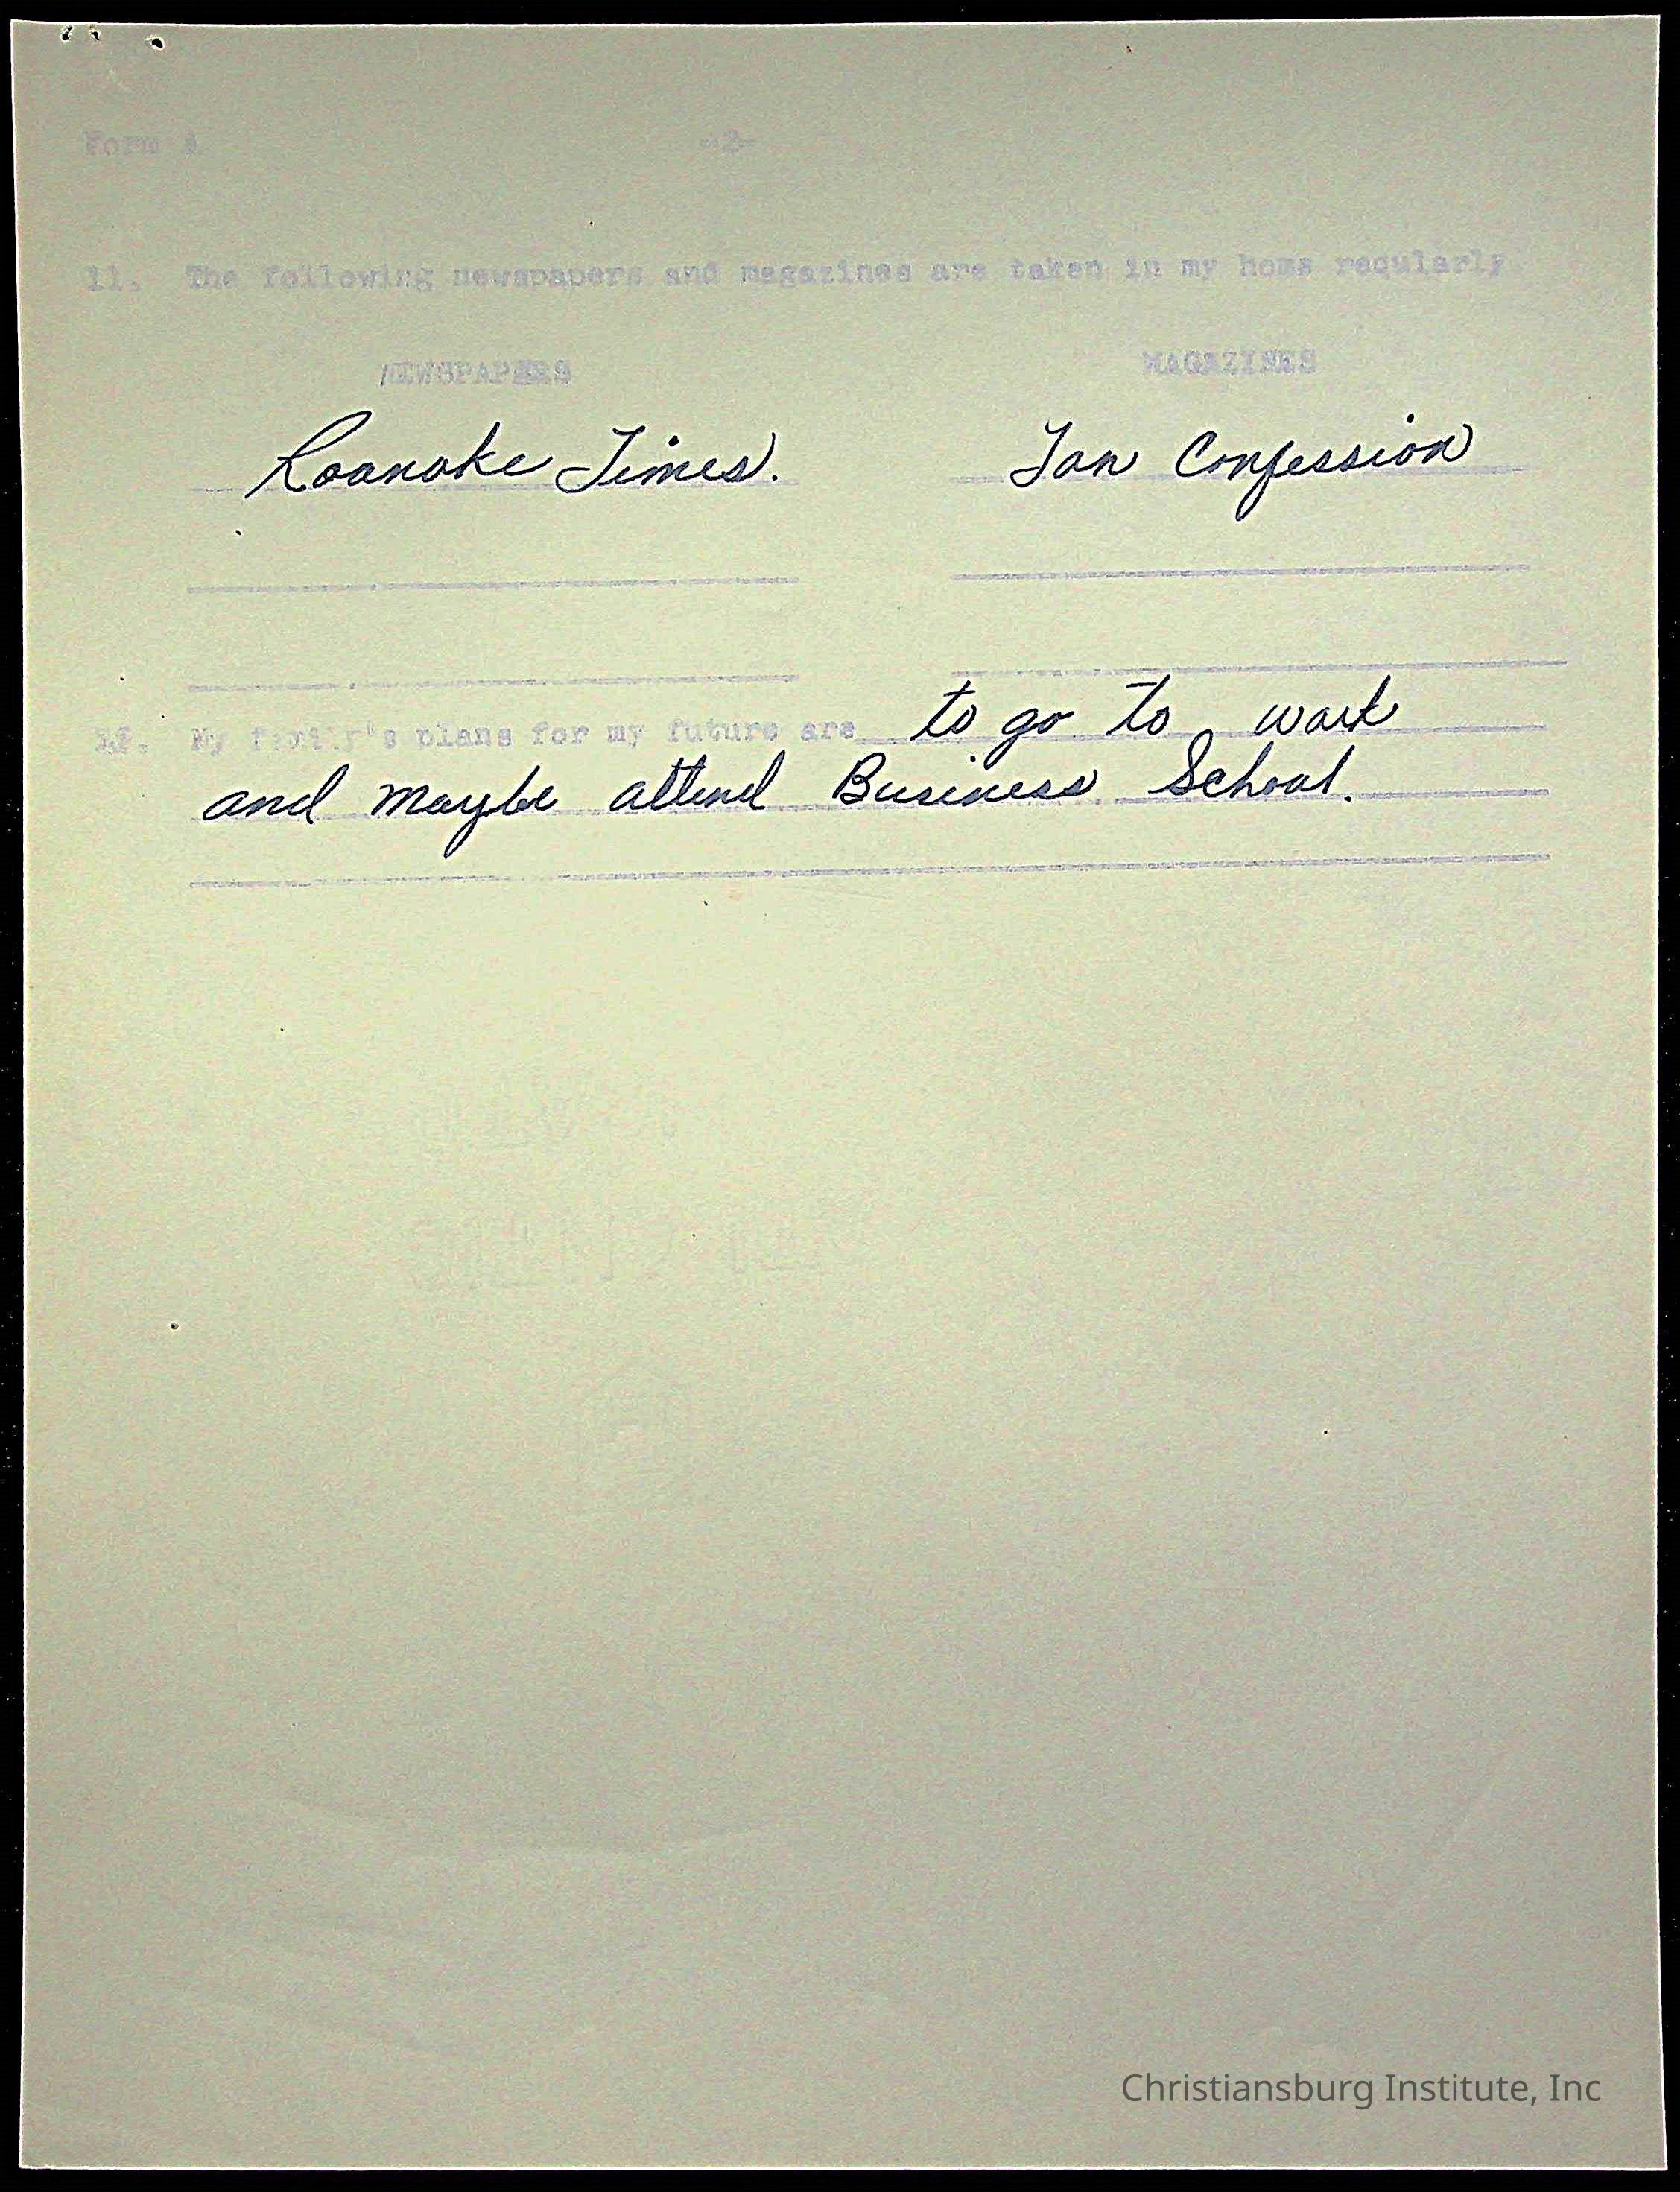 Form A -2-
11. The following newspapers and magazines are taken in my home regularly
NEWSPAPERS MAGAZINES
Roanoke Times. Tan Confession
12. My family's plans for my future are to go to work
and maybe attend Business School.
Christiansburg Institute, Inc